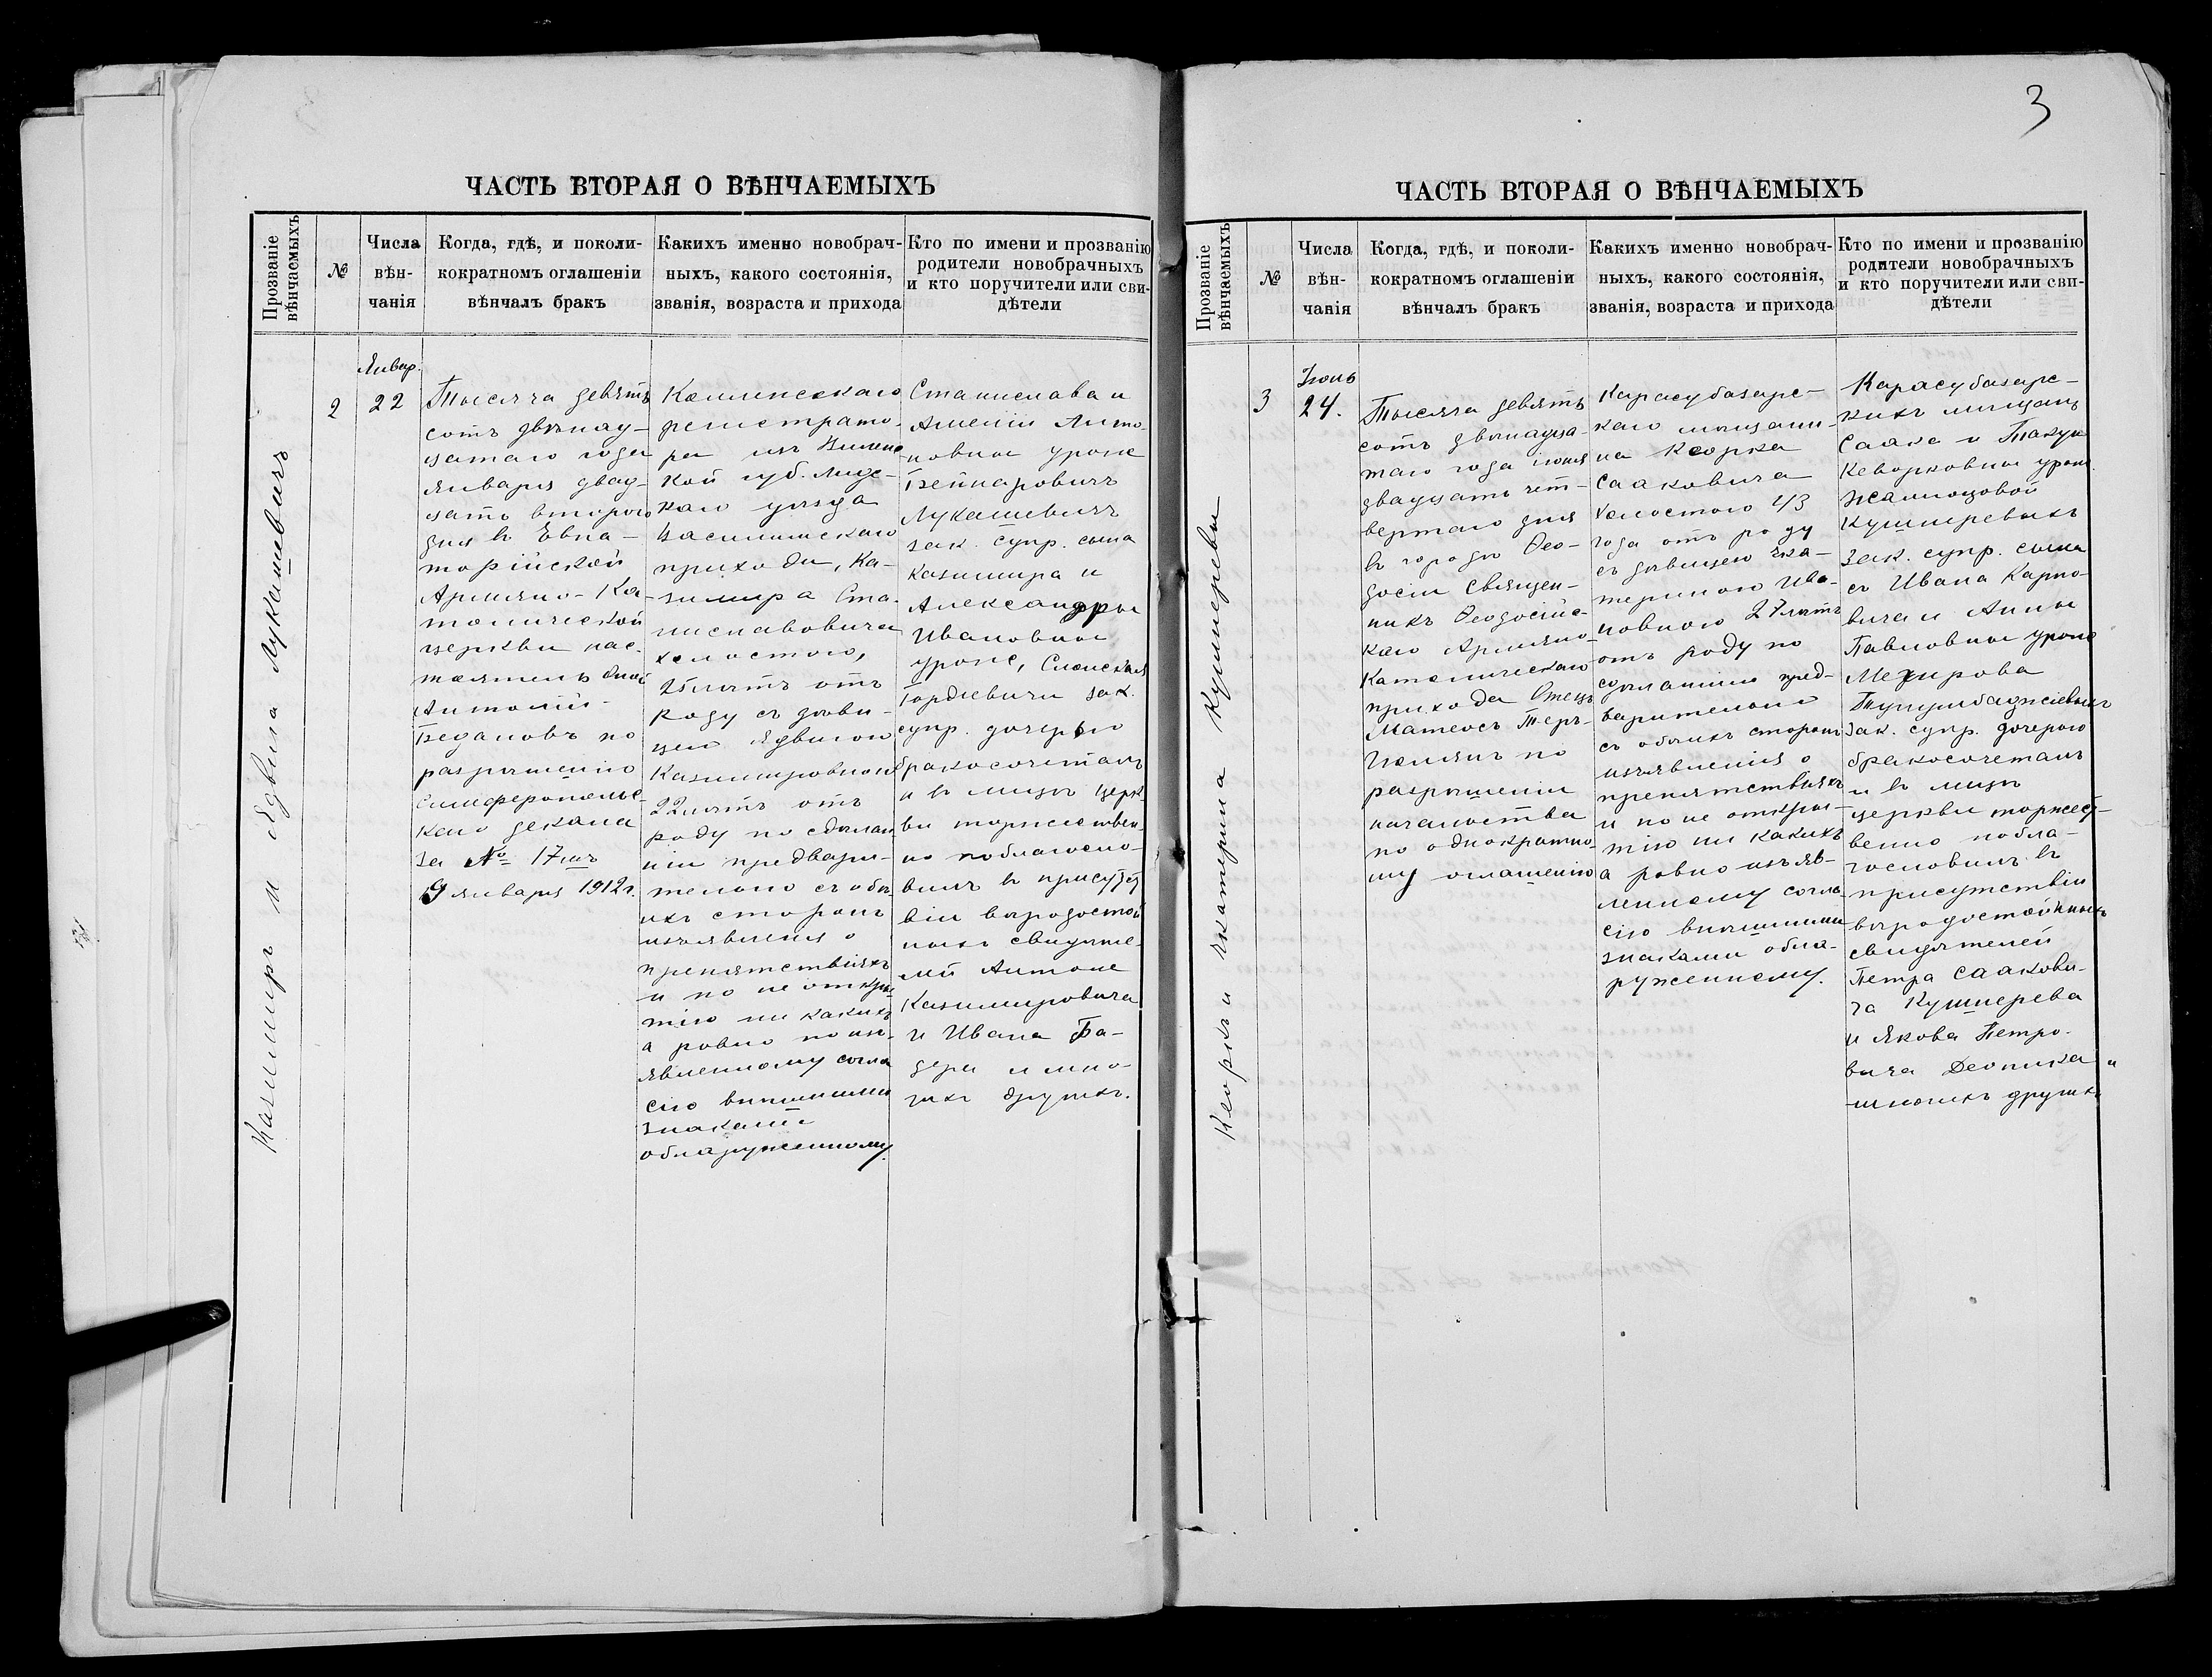 3
ЧАСТЬ ВТОРАЯ О ВѢНЧАЕМЫХЪ
Прозваніе вѣнчаемыхъ
№
Числа вѣн-чанія
Когда, гдѣ, и поколи-
кократномъ оглашеніи
вѣнчалъ бракъ
Какихъ именно новобрач-
ныхъ, какого состоянія,
званія, возраста и прихода
Кто по имени и прозванію
родители новобрачныхъ
и кто поручители или сви-
дѣтели
Казимиръ и Ядвига Лукашевичъ
2
Январ.
22
Тысяча девять
сотъ двѣнад-
цатаго года
Января двад-
цать второго
дня въ Евпа-
торійской
Армяно-Ка-
толической
церкви нас-
тоятель оной
Антоній
Бедановъ по
разрѣшенію
Симферопольс-
каго декана
за № 17
9 января 1912 г.
Коллежскаго
регистрато-
ра изъ Виленс-
кой губ. Лидс-
каго уѣзда
Василишскаго
прихода, Ка-
зимира Ста-
ниславовича
холостого,
25 лѣтъ отъ
роду съ дѣви-
цею Ядвигою
Казимировною
22 лѣтъ отъ
роду по сдѣлан
ніи предвари-
тельно съ обѣ-
ихъ сторонъ
изъявленія о
препятствіяхъ
и по не откры-
тію ни какихъ
а ровно по изъ-
явленному согла
сію внѣшними
знаками
обнаруженному.
Станислава и
Амеліи Анто-
новны урож
Бейнаровичъ
Лукашевичъ
зак. супр. сына
Казимира и
Александры
Ивановны
урож.
Гордзевичи зак.
супр. дочерью
бракосочеталъ
и въ лицѣ церк-
ви торжествен-
но поблагосло-
вилъ въ присутст
віи вѣродостой
ныхъ свидѣте-
лей Антона
Казимировича
и Ивана Ба-
деры и мно-
гихъ другихъ.
ЧАСТЬ ВТОРАЯ О ВѢНЧАЕМЫХЪ
Прозваніе вѣнчаемыхъ
№
Числа вѣн-чанія
Когда, гдѣ, и поколи-
кократномъ оглашеніи
вѣнчалъ бракъ
Какихъ именно новобрач-
ныхъ, какого состоянія,
званія, возраста и прихода
Кто по имени и прозванію
родители новобрачныхъ
и кто поручители или сви-
дѣтели
Кеоркъ и Екатерина Кушнеревы
3
Іюнь
24.
Тысяча девять
сотъ двѣнадца-
таго года іюня
двадцать чет-
вертаго дня
въ городѣ Ѳео-
досіи Священ-
никъ Ѳеодосійс-
каго Армяно-
Католическаго
прихода Отецъ
Матеосъ Теръ-
по
разрѣшенію
начальства
по однократно-
му оглашенію
Карасубазарс-
каго мѣщани-
на Кеорка
Сааковича
холостого 43
года отъ роду
съ дѣвицею Ека-
териною Ива-
новною 27 лѣтъ
отъ роду по
сдѣланіи пред-
варительно
съ обѣихъ сторонъ
изъявленія о
препятствіяхъ
и по не откры-
тію ни какихъ
а ровно изъяв-
ленному согла
сію внѣшними
знаками обна-
руженному.
Карасубазарс-
кихъ мѣщанъ
Саака и Такуи
Кеворковны урож.
Жамгоцовой
Кушнеревыхъ
зак. супр. сына
съ Ивана Карпо-
вича и Анны
Павловны урож
Мехирова
зак. супр. дочерью
бракосочеталъ
и въ лицѣ
церкви торжест-
венно побла-
гословилъ въ
присутствіи
вѣродостойныхъ
свидѣтелей
Петра Саакови-
ча Кушнерева
и Якова Петро-
вича Деоника и
многихъ другихъ